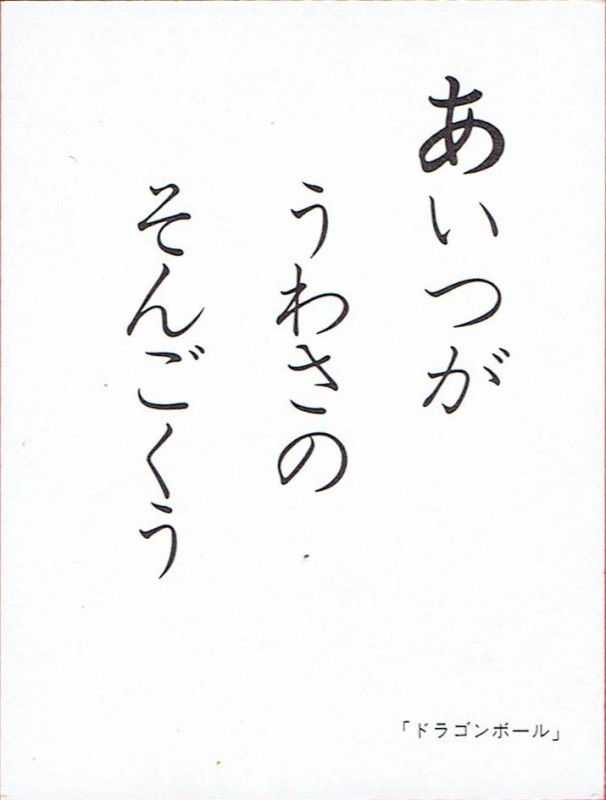 あいつが
うわさの
そんごくう
「ドラゴンボール」